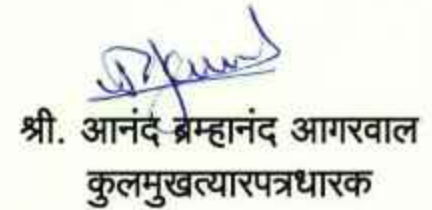 श्री. आनंद ब्रम्हानंद आगरवाल
कुलमुखत्यारपत्रधारक